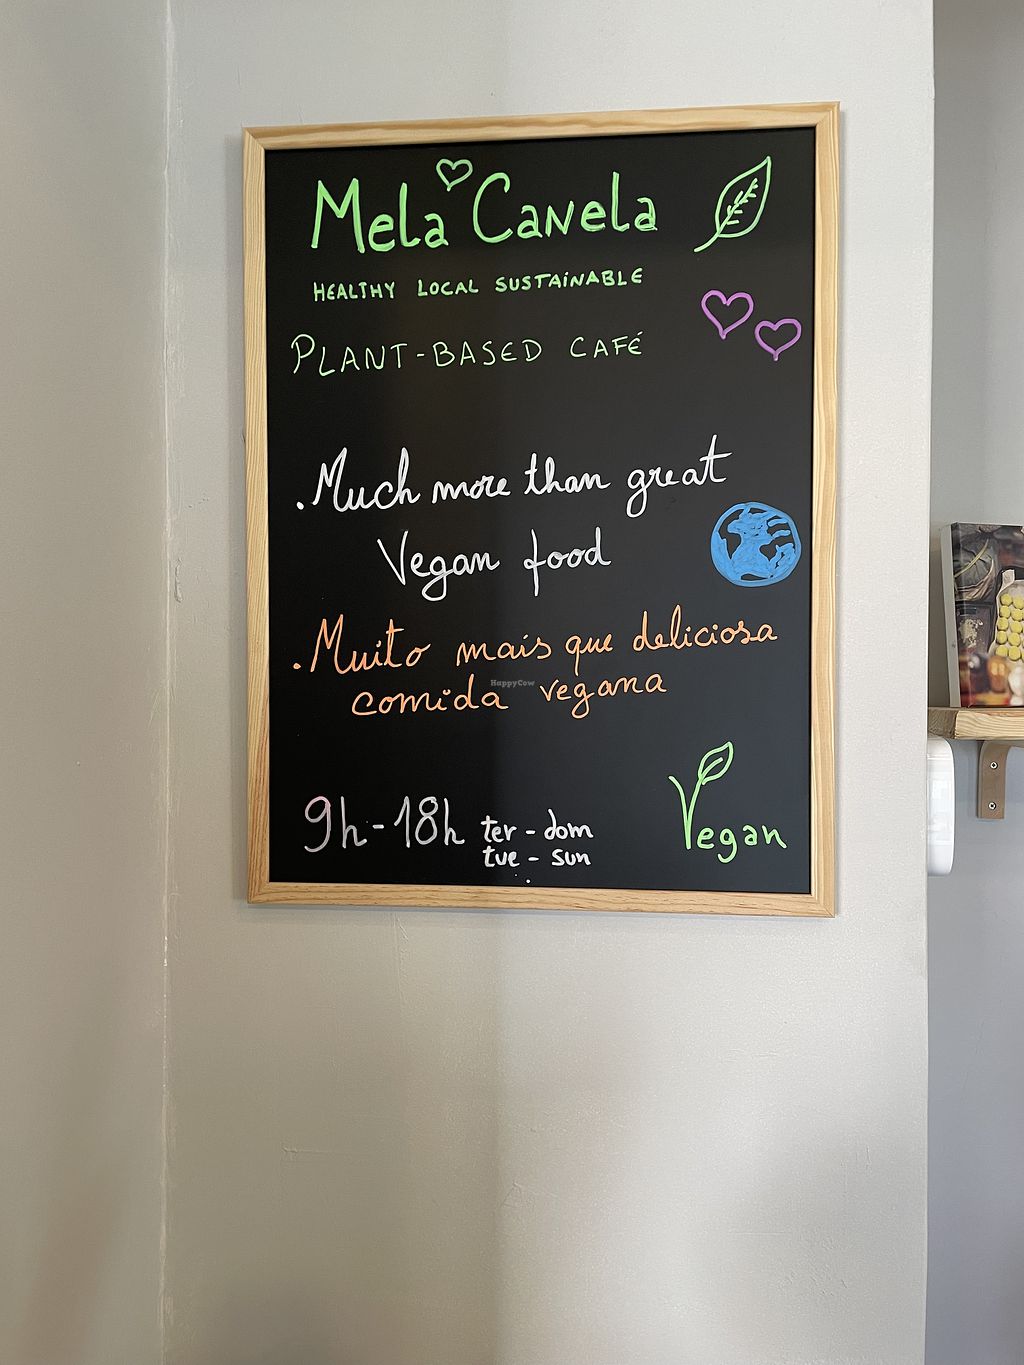 Mela Canela
HEALTHY LOCAL SUSTAINABLE
PLANT-BASED CAFÉ
. Much more than great
Vegan food
. Muito mais que deliciosa
comida vegana
HappyCow
9h-18h ter - dom
tue - sun
Vegan